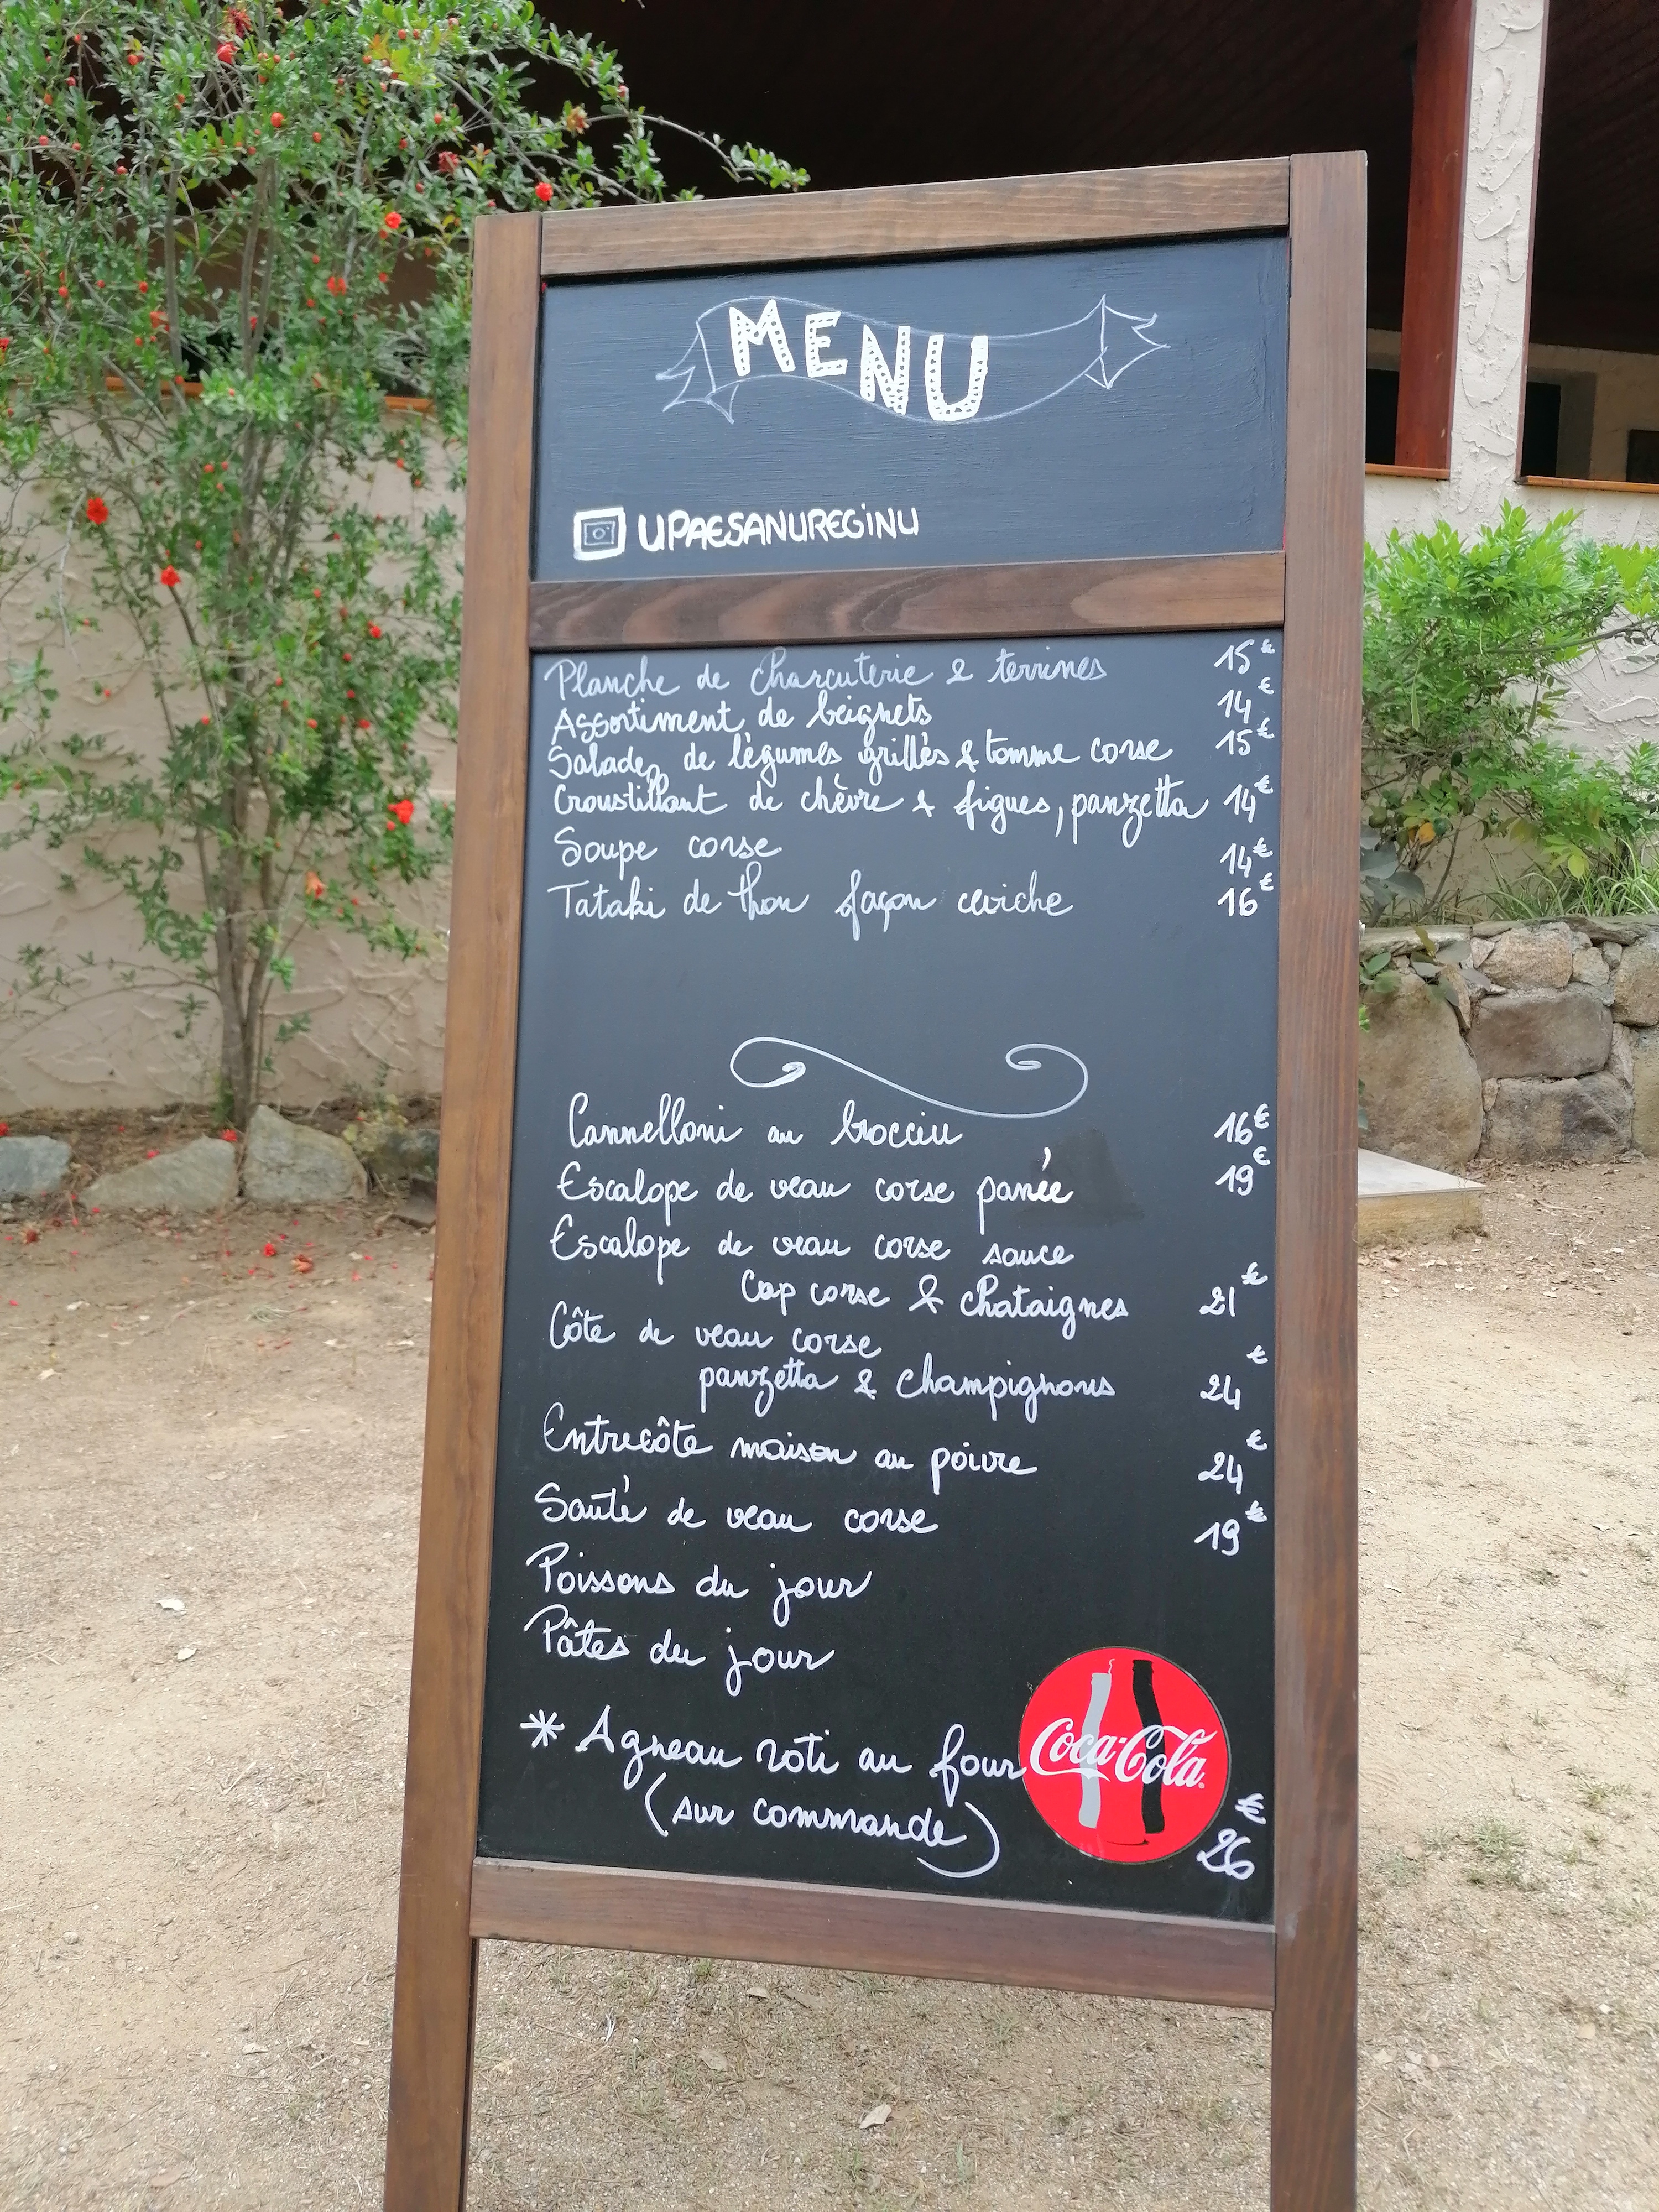 MENU
UPAESANUREGINU
Planche de charcuterie & terrines 15€
Assortiment de beignets 14€
Salade de légumes grillés & tomme corse 15€
Croustillant de chèvre & figues, panzetta 14€
Soupe corse 14€
Tataki de thon façon ceviche 16€
Cannelloni au brocciu 16€
Escalope de veau corse panée 19€
Escalope de veau corse sauce
Cap corse & chataignes 21€
Côte de veau corse
panzetta & champignons 24€
Entrecôte maison au poivre 24€
Sauté de veau corse 19€
Poissons du jour
Pâtes du jour
* Agneau roti au four
(sur commande) 26€
Coca-Cola